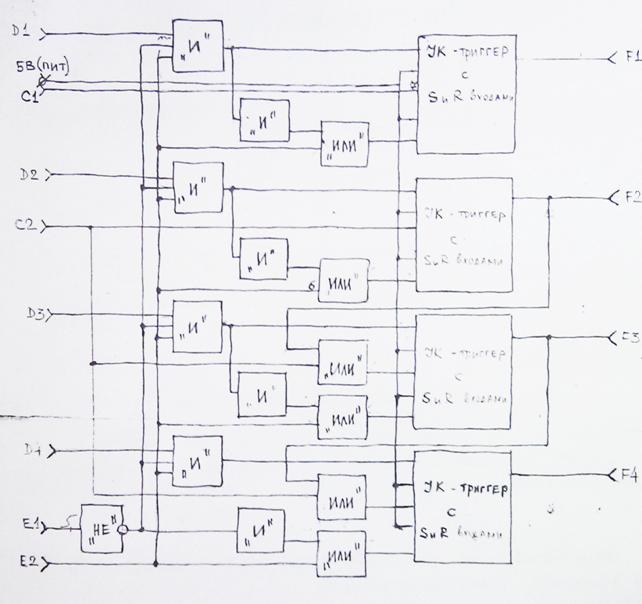 D1
"И"
JK-ТРИГГЕР
С
S и R ВХОДАМИ
F1
5В(ПИТ)
C1
"И"
"ИЛИ"
D2
"И"
JK-ТРИГГЕР
С
S и R ВХОДАМИ
F2
C2
"И"
"ИЛИ"
D3
"И"
JK-ТРИГГЕР
С
S и R ВХОДАМИ
F3
"ИЛИ"
"И"
"ИЛИ"
D4
"И"
JK-ТРИГГЕР
С
S и R ВХОДАМИ
F4
"ИЛИ"
E1
"НЕ"
"И"
"ИЛИ"
E2